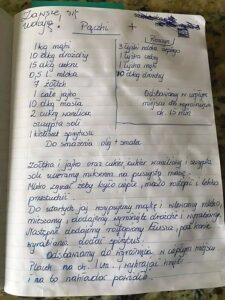 Zawsze się
udają
Pączki +
1 kg mąki
10 dkg drożdży
15 dkg cukru
0,5 L mleka
7 żółtek
1 całe jajko
10 dkg masła
2 cukry waniliowe
szczypta soli
1 kieliszek spirytusu
Do smażenia olej + smalec
Rozczyn
3 łyżki mleka ciepłego
1 łyżka cukru
1 łyżka mąki
10 dkg drożdży
Odstawiamy w ciepłym
miejscu do wyrośnięcia
ok. 15 min
Żółtka i jajko oraz cukier, cukier waniliowy i szczyptę
soli ucieramy mikserem na puszystą masę.
Mleko ma być ciepłe, masło roztopić i lekko
przestudzić
Do utartej masy wsypujemy mąkę i wlewamy mleko,
mieszamy, dodajemy wyrośnięte drożdże i wyrabiamy.
Następnie dodajemy roztopiony tłuszcz, pod koniec
wyrabiania dodać spirytus.
Odstawiamy do wyrośnięcia w ciepłym miejscu
na ok. 1 h i wykrajać
i na to nakładać powidła